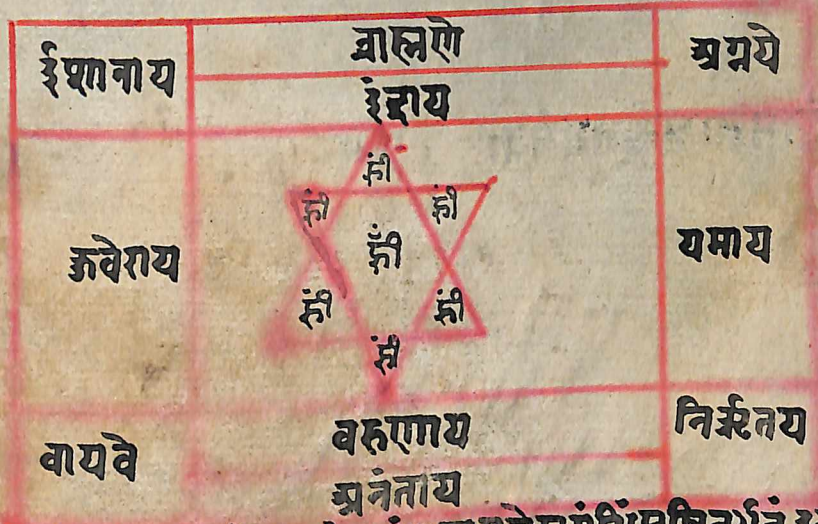 ईशानाय
ब्राह्मणे
अग्नये
इंद्राय
ह्रीं
ह्रीं ह्रीं
ह्रीं
कुवेराय
यमाय
ह्रीं ह्रीं
ह्रीं
वरुणाय
निर्ऋतय
वायवे
अनंताय